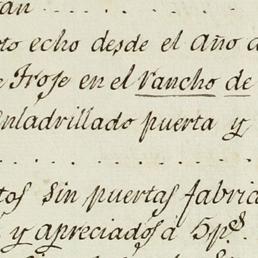 an . . . .
to echo desde el año d
e Troje en el rancho de
enladrillado puerta y
. . . . . . . . . .
tos sin puertas fabric
y apreciados a 5p.s